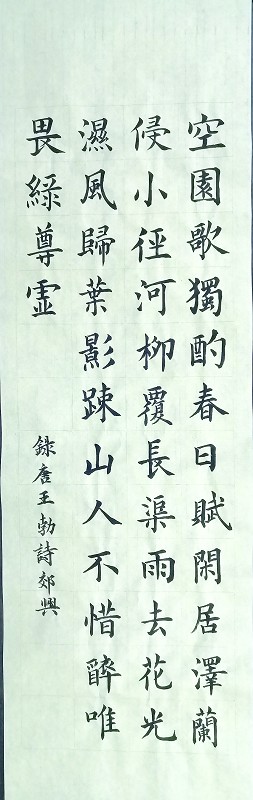 空園歌獨酌春日賦閑居澤蘭
侵小徑河柳覆長渠雨去花光
濕風歸葉影踈山人不惜醉唯
畏綠尊虛
録唐王勃詩郊興